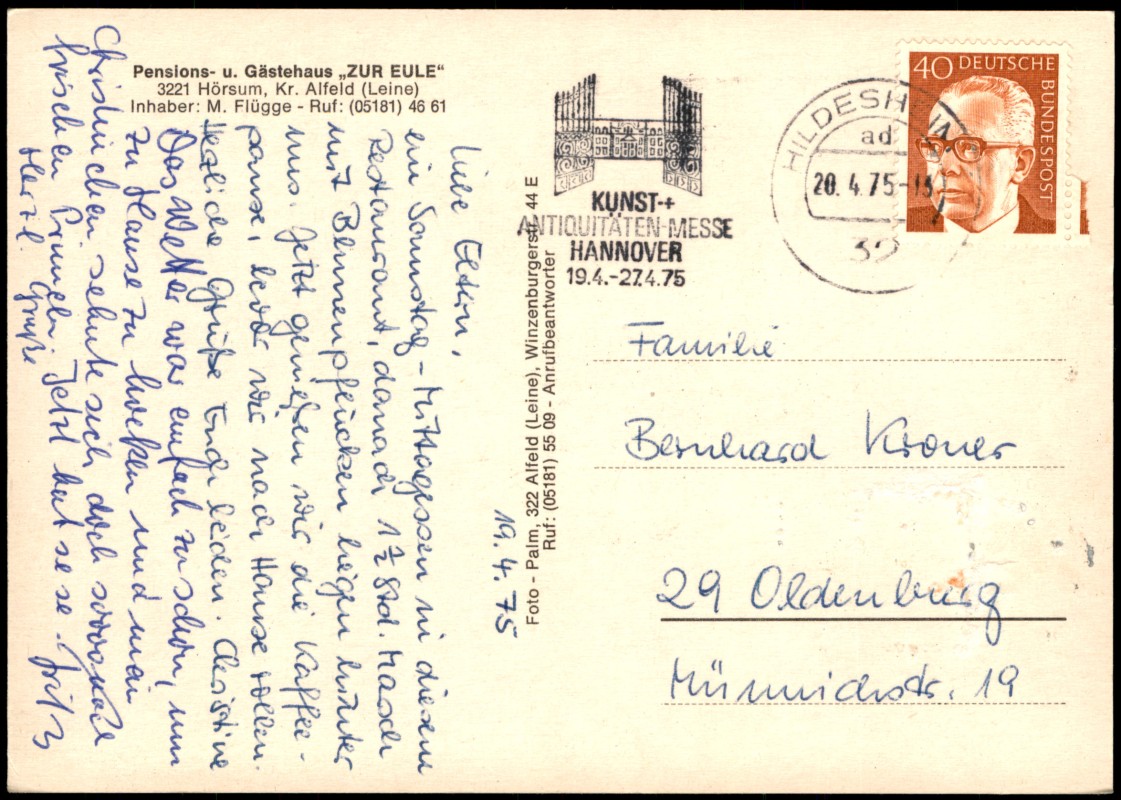 Pensions- u. Gästehaus „ZUR EULE“
3221 Hörsum, Kr. Alfeld (Leine)
Inhaber: M. Flügge - Ruf: (05181) 46 61
Liebe Eltern,
ein Samstag-Mittagessen in diesem
Restaurant, danach 1½ Std. Marsch
mit Blumenpflücken liegen hinter
uns. Jetzt genießen wir die Kaffee-
pause, bevor wir nach Hause rollen.
Herzliche Grüße Euch beiden. Christine
Das Wetter war einfach zu schön, um
zu Hause zu hocken und mein
Christinchen sehnte sich doch soooo nach
frischen Primeln. Jetzt hat se se.
Herzl. Grüße Fritz
19.4.75
Foto - Palm, 322 Alfeld (Leine), Winzenburgerstr. 44 E
Ruf: (05181) 55 09 - Anrufbeantworter
KUNST-+
ANTIQUITÄTEN-MESSE
HANNOVER
19.4.-27.4.75
HILDESHEIM
ad
20.4.75-13
32
40 DEUTSCHE
BUNDESPOST
Familie
Bernhard Kroner
29 Oldenburg
Münnichstr. 19